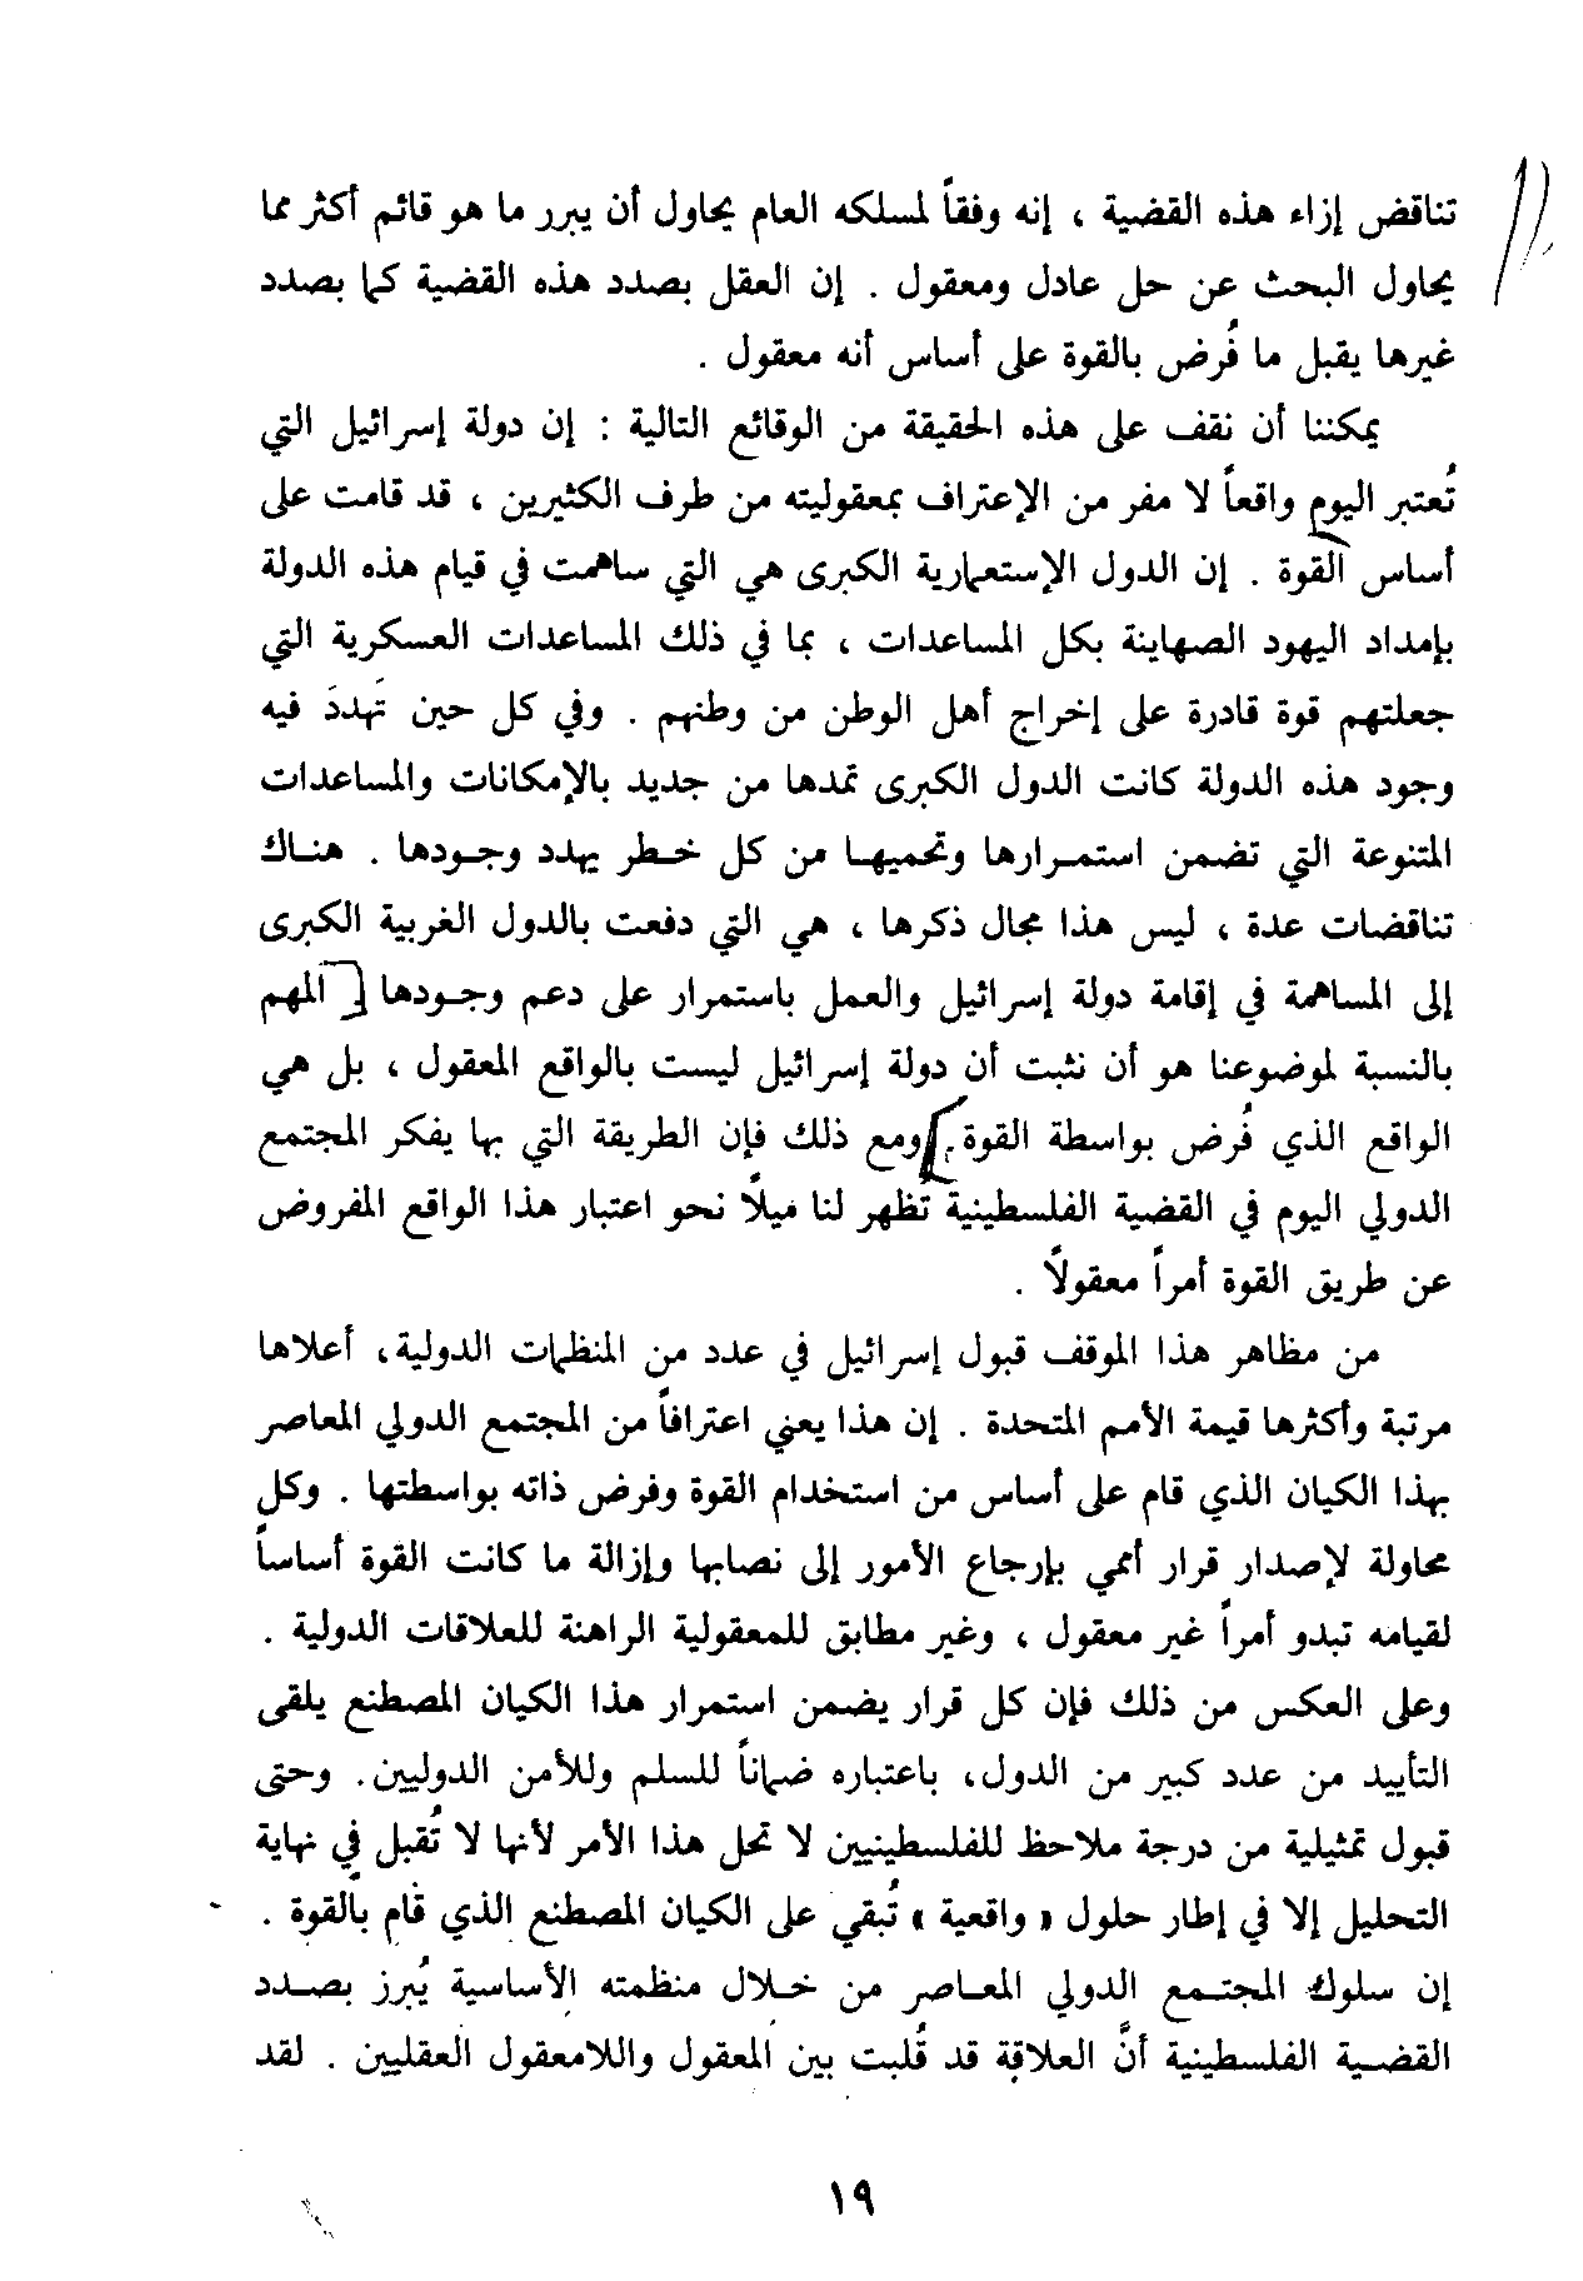 تناقض إزاء هذه القضية ، إنه وفقاً لمسلكه العام يحاول أن يبرر ما هو قائم أكثر مما
يحاول البحث عن حل عادل ومعقول . إن العقل بصدد هذه القضية كما بصدد
غيرها يقبل ما فُرض بالقوة على أساس أنه معقول .
يمكننا أن نقف على هذه الحقيقة من الوقائع التالية : إن دولة إسرائيل التي
تُعتبر اليوم واقعاً لا مفر من الإعتراف بمعقوليته من طرف الكثيرين ، قد قامت على
أساس القوة . إن الدول الإستعمارية الكبرى هي التي ساهمت في قيام هذه الدولة
بإمداد اليهود الصهاينة بكل المساعدات ، بما في ذلك المساعدات العسكرية التي
جعلتهم قوة قادرة على إخراج أهل الوطن من وطنهم . وفي كل حين تَهددَ فيه
وجود هذه الدولة كانت الدول الكبرى تمدها من جديد بالإمكانات والمساعدات
المتنوعة التي تضمن استمـرارها وتحميهـا من كل خـطر يهدد وجـودها . هنـاك
تناقضات عدة ، ليس هذا مجال ذكرها ، هي التي دفعت بالدول الغربية الكبرى
إلى المساهمة في إقامة دولة إسرائيل والعمل باستمرار على دعم وجـودها [ المهم
بالنسبة لموضوعنا هو أن نثبت أن دولة إسرائيل ليست بالواقع المعقول ، بل هي
الواقع الذي فُرض بواسطة القوة .] ومع ذلك فإن الطريقة التي بها يفكر المجتمع
الدولي اليوم في القضية الفلسطينية تُظهر لنا ميلاً نحو اعتبار هذا الواقع المفروض
عن طريق القوة أمراً معقولاً .
من مظاهر هذا الموقف قبول إسرائيل في عدد من المنظمات الدولية، أعلاها
مرتبة وأكثرها قيمة الأمم المتحدة . إن هذا يعني اعترافاً من المجتمع الدولي المعاصر
بهذا الكيان الذي قام على أساس من استخدام القوة وفرض ذاته بواسطتها . وكل
محاولة لإصدار قرار أممي بإرجاع الأمور إلى نصابها وإزالة ما كانت القوة أساساً
لقيامه تبدو أمراً غير معقول ، وغير مطابق للمعقولية الراهنة للعلاقات الدولية .
وعلى العكس من ذلك فإن كل قرار يضمن استمرار هذا الكيان المصطنع يلقى
التأييد من عدد كبير من الدول، باعتباره ضماناً للسلم وللأمن الدوليين. وحتى
قبول تمثيلية من درجة ملاحظ للفلسطينيين لا تحل هذا الأمر لأنها لا تُقبل في نهاية
التحليل إلا في إطار حلول « واقعية » تُبقي على الكيان المصطنع الذي قام بالقوة .
إن سلوك المجتـمع الدولي المعـاصر من خـلال منظمته الأساسية يُبرز بصـدد
القضـية الفلسطينية أنَّ العلاقة قد قُلبت بين المعقول واللامعقول العقليين . لقد
١٩